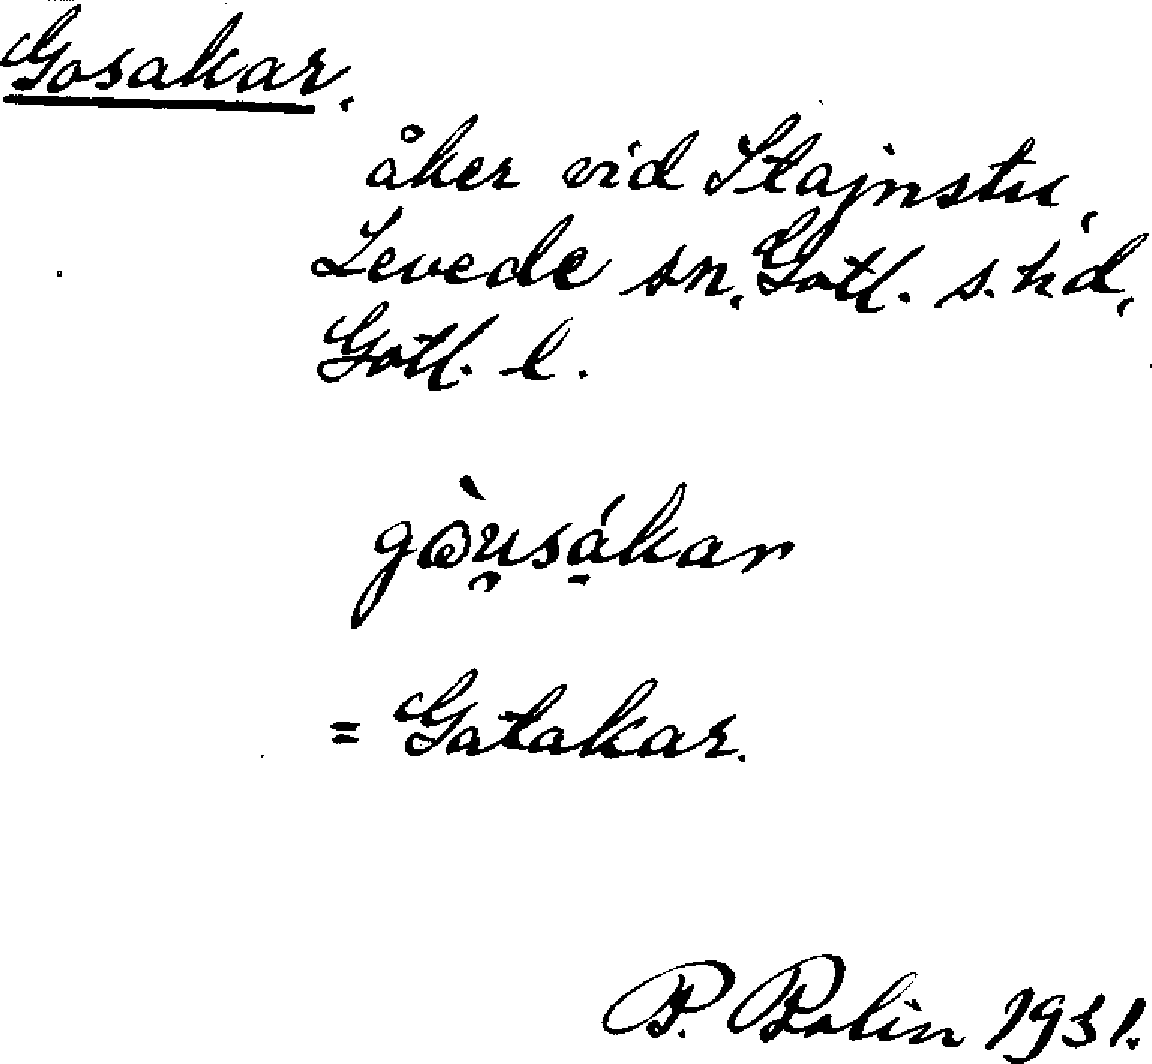 Gosakar.
åker vid Stajnstu,
Levede sn, Gotl. s. hd,
Gotl. l.
gɷ̀u̯sá̱kar
= Gatakar.
P. Bolin 1931.